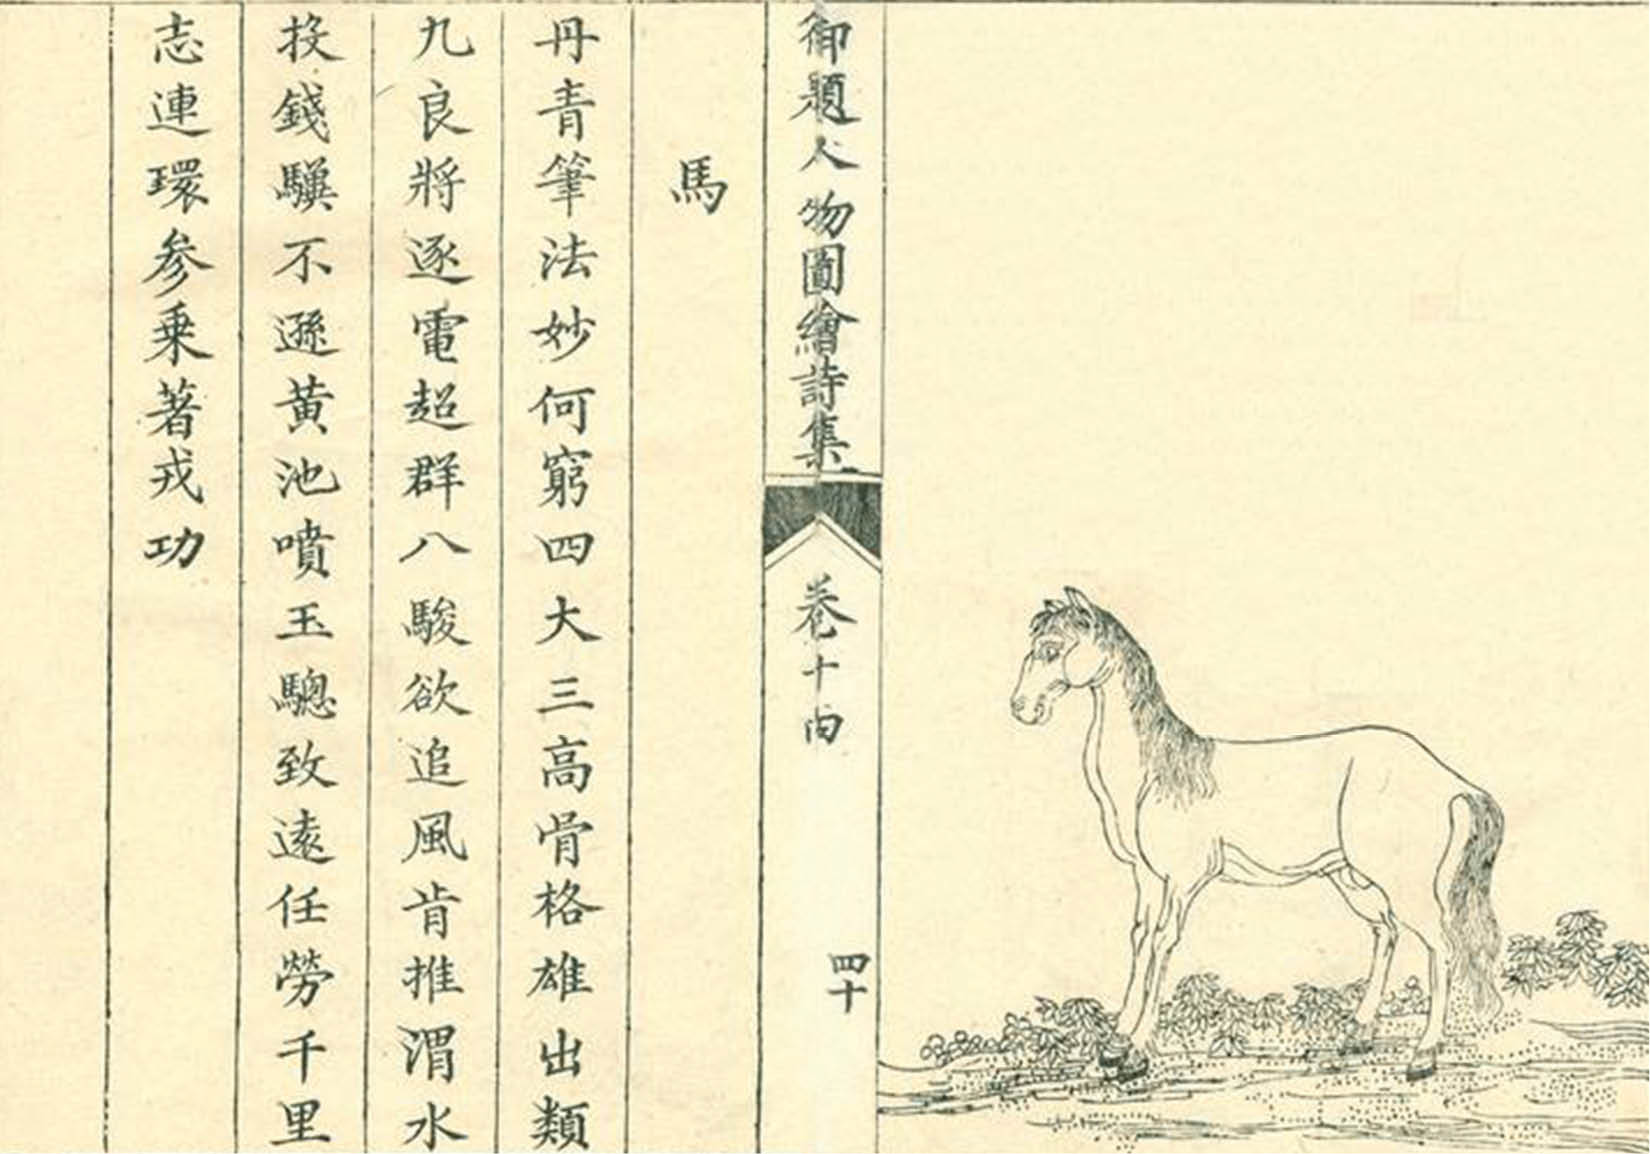 御題人物圖繪詩集
卷十
四十
馬
丹青筆法妙何窮四大三高骨格雄出類
九良將逐電超群八駿欲追風肯推渭水
投錢驥不遜黄池噴玉驄致逺任勞千里
志連環参乗著戎功